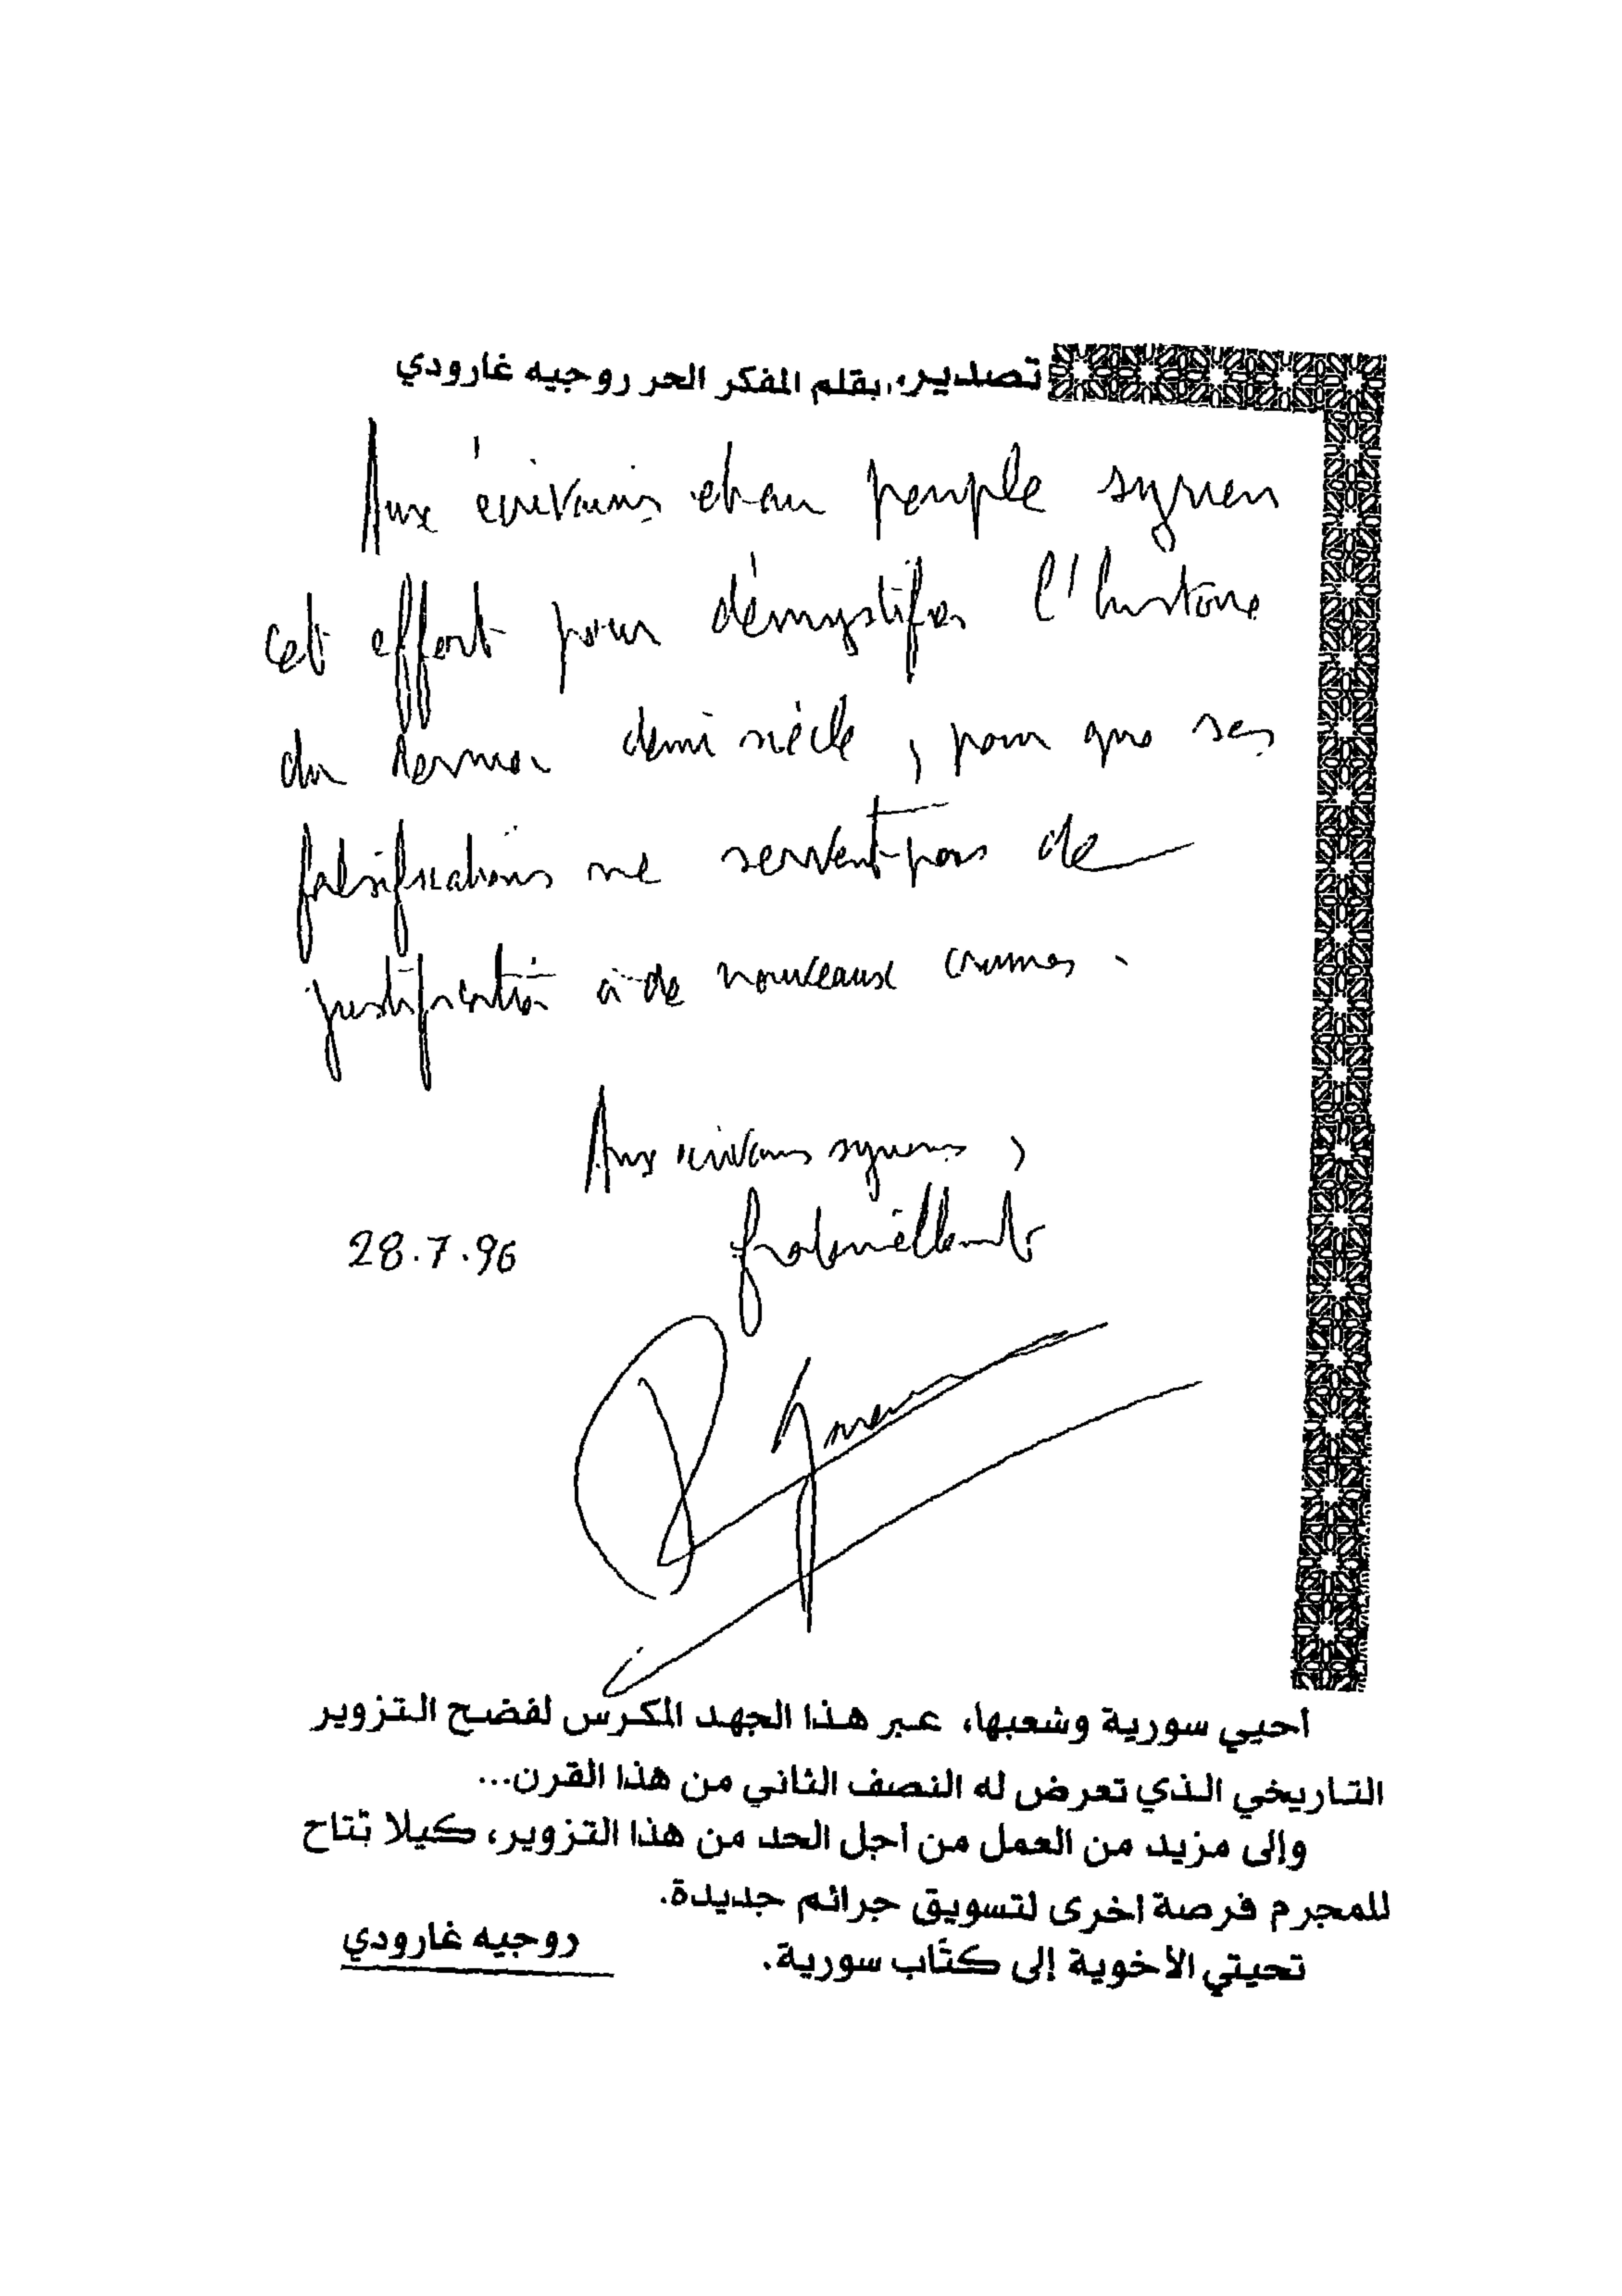 تصدير، بقلم المفكر الحر روجيه غارودي
Aux écrivains et au peuple syrien
cet effort pour démystifier l'histoire
du dernier demi siècle, pour que ses
falsifications ne servent pas de
justification à de nouveaux crimes.
Aux écrivains syriens,
fraternellement
28.7.96
أحيي سورية وشعبها، عبر هذا الجهد المكرس لفضح التزوير
التاريخي الذي تعرض له النصف الثاني من هذا القرن...
وإلى مزيد من العمل من أجل الحد من هذا التزوير، كيلا تُتاح
للمجرم فرصة اخرى لتسويق جرائم جديدة.
تحيتي الأخوية إلى كتّاب سورية.
روجيه غارودي